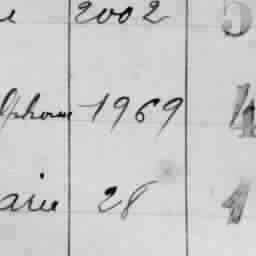 2002 5
lphonse 1969 4
arie 28 1